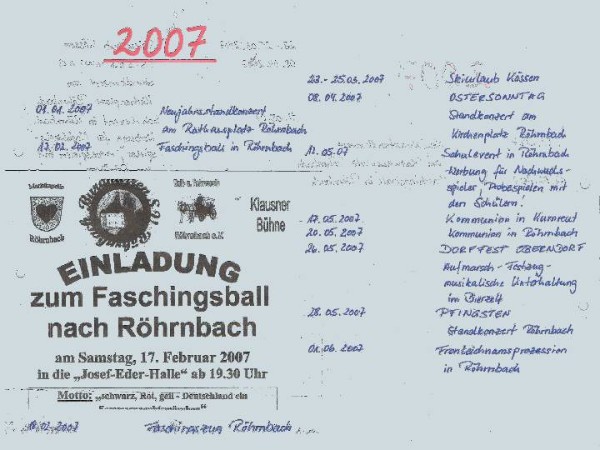 2007
01.01.2007 Neujahrsstandkonzert
am Rathausplatz Röhrnbach
17.02.2007 Faschingsball in Röhrnbach
Marktkapelle
Röhrnbach
Röhrnbach e.V.
Klausner
Bühne
EINLADUNG
zum Faschingsball
nach Röhrnbach
am Samstag, 17. Februar 2007
in die „Josef-Eder-Halle“ ab 19.30 Uhr
Motto: „schwarz, Rot, geil - Deutschland ein
18.02.2007 Faschingszug Röhrnbach
23.-25.03.2007 Skiurlaub Kössen
08.04.2007 OSTERSONNTAG
Standkonzert am
Kirchenplatz Röhrnbach
11.05.07 Schulevent in Röhrnbach
Werbung für Nachwuchs-
spieler, Probespielen mit
den Schülern!
17.05.2007 Kommunion in Kumreut
20.05.2007 Kommunion in Röhrnbach
26.05.2007 DORFFEST OBERNDORF
Aufmarsch - Festzug -
musikalische Unterhaltung
im Bierzelt
28.05.2007 PFINGSTEN
Standkonzert Röhrnbach
01.06.2007 Fronleichnamsprozession
in Röhrnbach